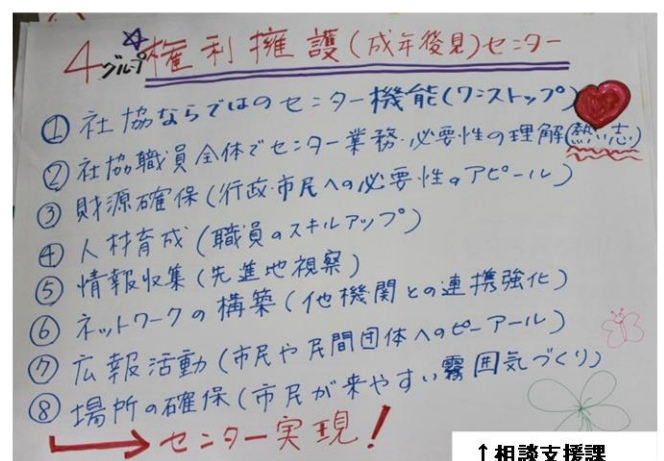 4グループ 権利擁護(成年後見)センター
① 社協ならではのセンター機能(ワンストップ)
② 社協職員全体でセンター業務・必要性の理解(熱い志)
③ 財源確保(行政・市民への必要性のアピール)
④ 人材育成(職員のスキルアップ)
⑤ 情報収集(先進地視察)
⑥ ネットワークの構築(他機関との連携強化)
⑦ 広報活動(市民や民間団体へのピーアール)
⑧ 場所の確保(市民が来やすい雰囲気づくり)
センター実現!
↑相談支援課